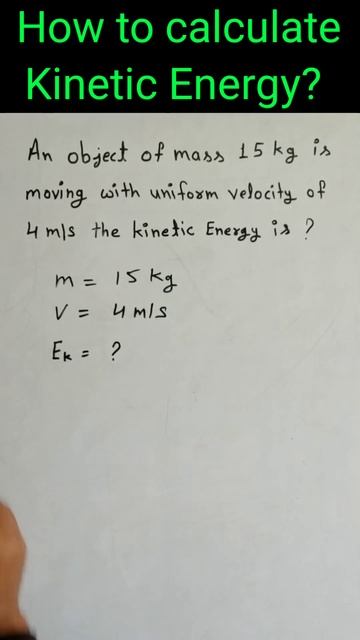 How to calculate
Kinetic Energy?
An object of mass 15 kg is
moving with uniform velocity of
4 m/s the kinetic Energy is ?
m = 15 kg
V = 4 m/s
Ek = ?